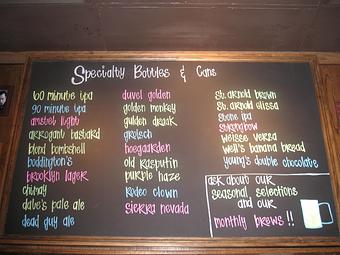 Specialty Bottles & Cans
60 minute ipa
90 minute ipa
amstel light
arrogant bastard
blond bombshell
boddington's
brooklyn lager
chimay
dave's pale ale
dead guy ale
duvel golden
golden monkey
gulden draak
grolsch
hoegaarden
old rasputin
purple haze
rodeo clown
sierra nevada
st. arnold brown
st. arnold elissa
stone ipa
strongbow
weisse versa
well's banana bread
young's double chocolate
ask about our
seasonal selections
and our
monthly brews!!